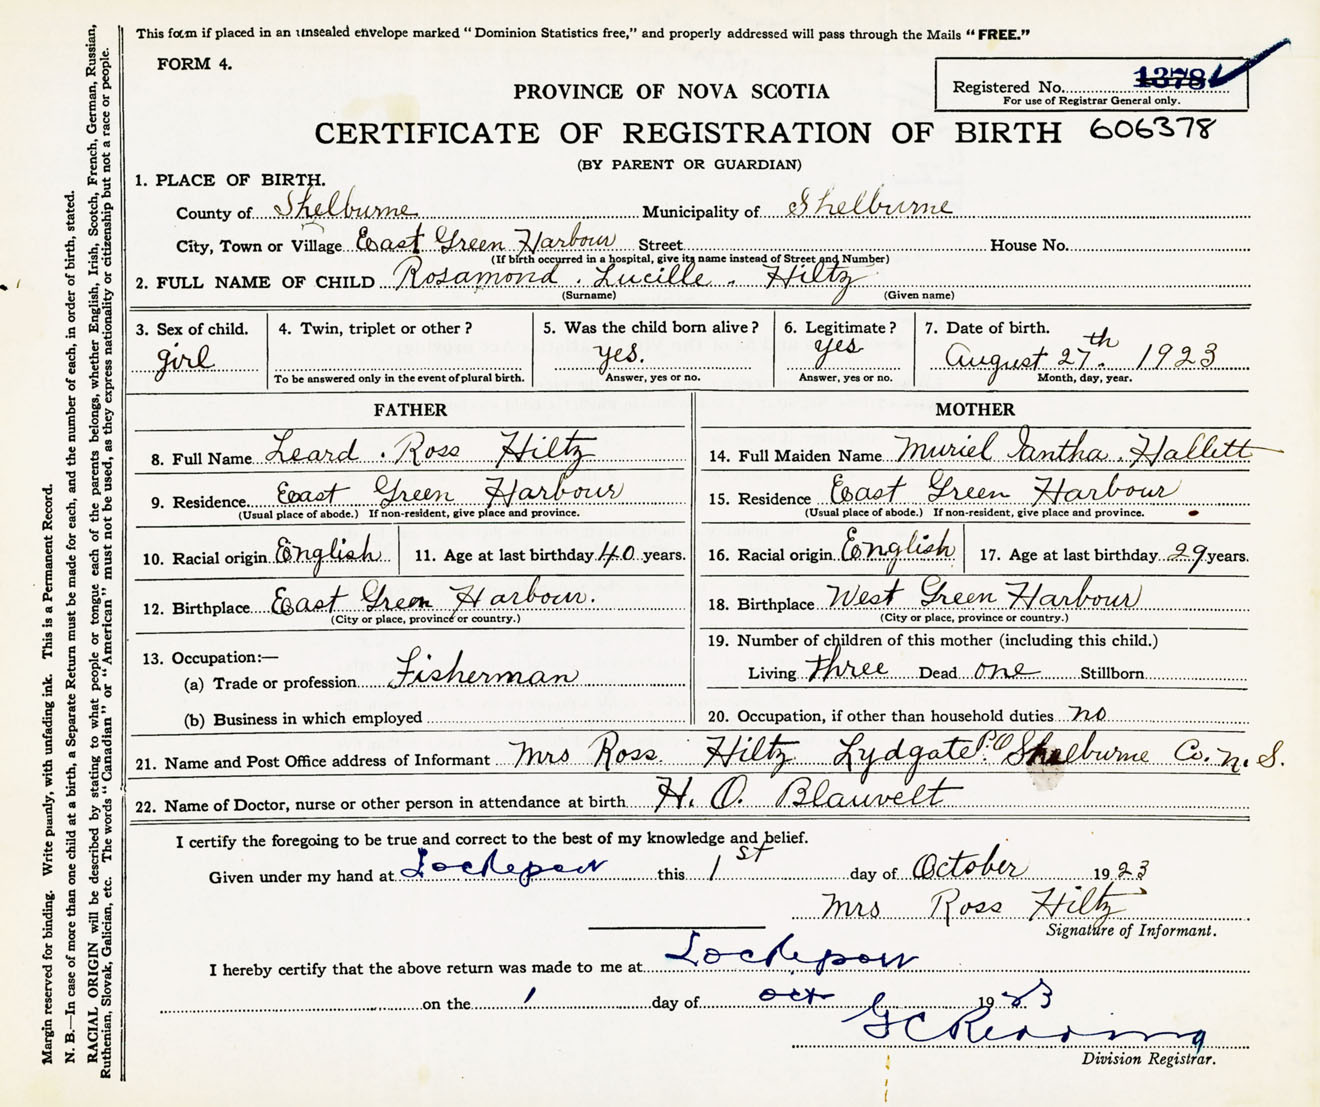 This form if placed in an unsealed envelope marked "Dominion Statistics free," and properly addressed will pass through the Mails "FREE."
FORM 4.
Registered No. 1378
For use of Registrar General only.
PROVINCE OF NOVA SCOTIA
CERTIFICATE OF REGISTRATION OF BIRTH 606378
(BY PARENT OR GUARDIAN)
1. PLACE OF BIRTH.
County of Shelburne Municipality of Shelburne
City, Town or Village East Green Harbour Street House No.
(If birth occurred in a hospital, give its name instead of Street and Number)
2. FULL NAME OF CHILD Rosamond. Lucille. Hiltz
(Surname) (Given name)
3. Sex of child. 4. Twin, triplet or other? 5. Was the child born alive? 6. Legitimate? 7. Date of birth.
girl yes. yes August 27th. 1923
To be answered only in the event of plural birth. Answer, yes or no. Answer, yes or no. Month, day, year.
FATHER MOTHER
8. Full Name Leard. Ross Hiltz
14. Full Maiden Name Muriel Iantha. Hallett
9. Residence East Green Harbour
(Usual place of abode.) If non-resident, give place and province.
15. Residence East Green Harbour
(Usual place of abode.) If non-resident, give place and province.
10. Racial origin English 11. Age at last birthday 40 years.
16. Racial origin English 17. Age at last birthday 29 years.
12. Birthplace East Green Harbour.
(City or place, province or country.)
18. Birthplace West Green Harbour
(City or place, province or country.)
13. Occupation:—
(a) Trade or profession Fisherman
(b) Business in which employed
19. Number of children of this mother (including this child.)
Living three Dead one Stillborn
20. Occupation, if other than household duties no
21. Name and Post Office address of Informant Mrs Ross. Hiltz Lydgate P.O. Shelburne Co. N. S.
22. Name of Doctor, nurse or other person in attendance at birth H. O. Blauvelt
I certify the foregoing to be true and correct to the best of my knowledge and belief.
Given under my hand at Lockeport this 1st day of October 1923
Mrs Ross Hiltz
Signature of Informant.
I hereby certify that the above return was made to me at Lockeport
on the 1 day of Oct 1923
G C Redding
Division Registrar.
Margin reserved for binding. Write plainly, with unfading ink. This is a Permanent Record.
N. B.—In case of more than one child at a birth, a Separate Return must be made for each, and the number of each, in order of birth, stated.
RACIAL ORIGIN will be described by stating to what people or tongue each of the parents belongs, whether English, Irish, Scotch, French, German, Russian,
Ruthenian, Slovak, Galician, etc. The words "Canadian" or "American" must not be used, as they express nationality or citizenship but not a race or people.